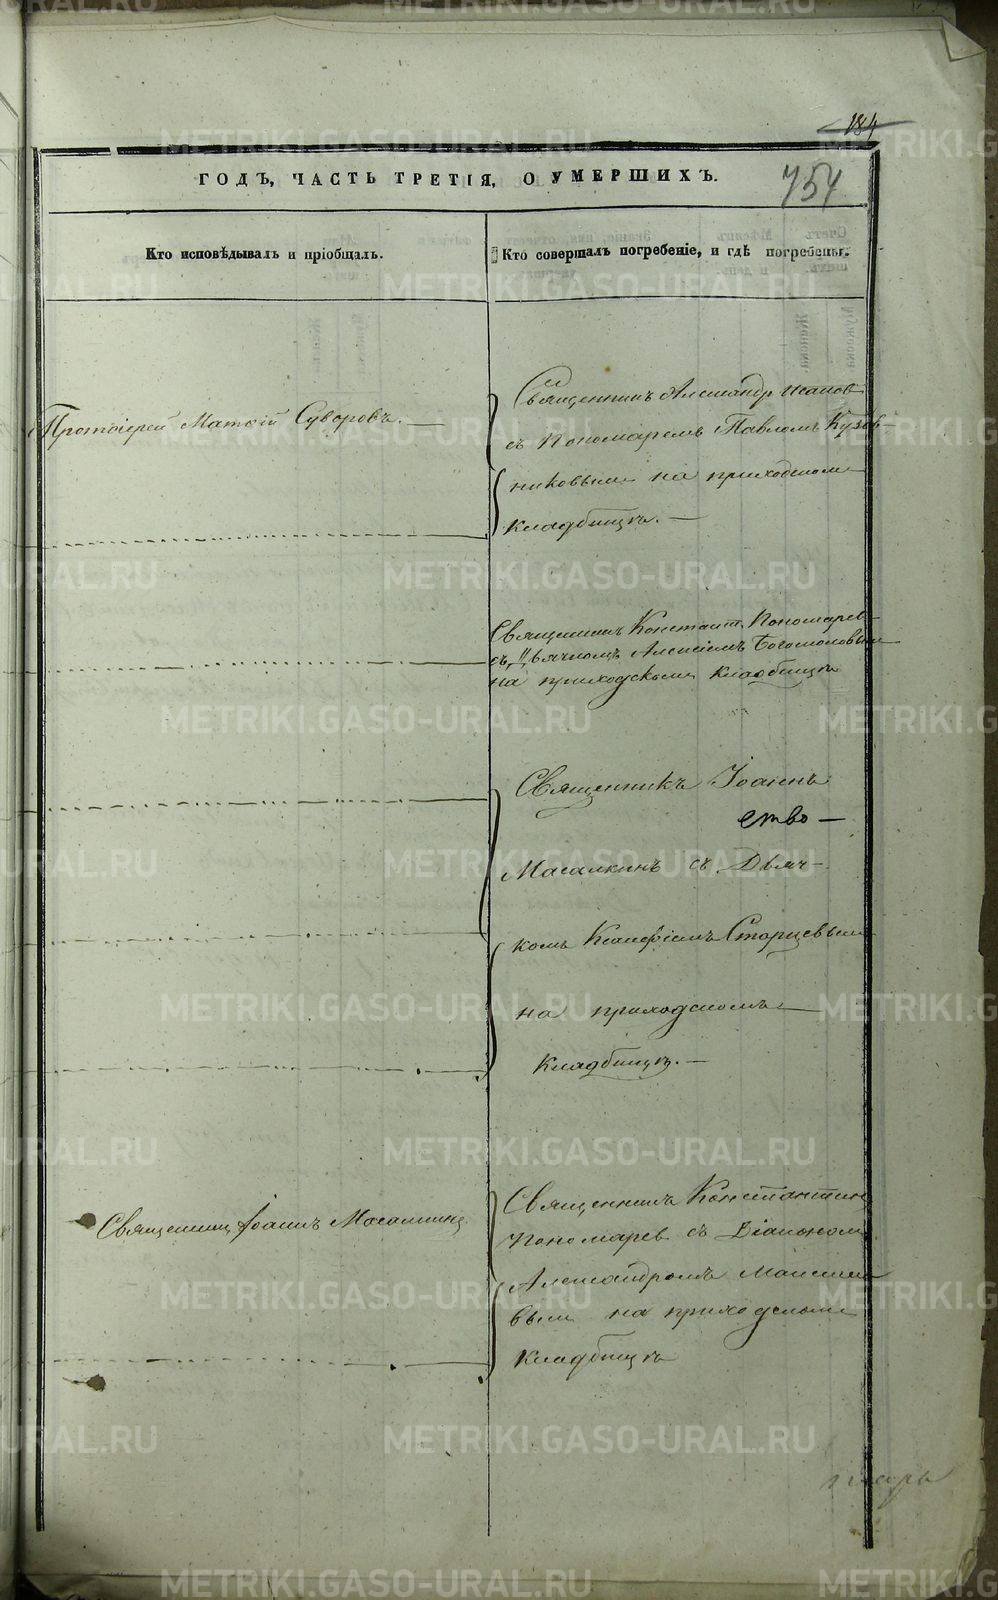 184
ГОДЪ, ЧАСТЬ ТРЕТІЯ, О УМЕРШИХЪ.
754
Кто исповѣдывалъ и пріобщалъ.
Кто совершалъ погребеніе, и гдѣ погребены.
Протоіерей Матѳій Суворовъ.
Священникъ Александр
съ Пономаремъ Павломъ Кузов-
никовымъ на приходскомъ
кладбищѣ.
Священникъ Констант. Пономарев
съ Алексіемъ Богомоловым
на приходскомъ кладбищѣ
Священникъ Іоаннъ
ство
Масалкинъ съ Дьяч-
комъ Старцевым
на приходскомъ
кладбищѣ.
Священник Іоаннъ Масалкинъ
Священникъ Константин
Пономарев съ Діакономъ
Александромъ
вым на приходском
кладбищѣ
METRIKI.GASO-URAL.RU